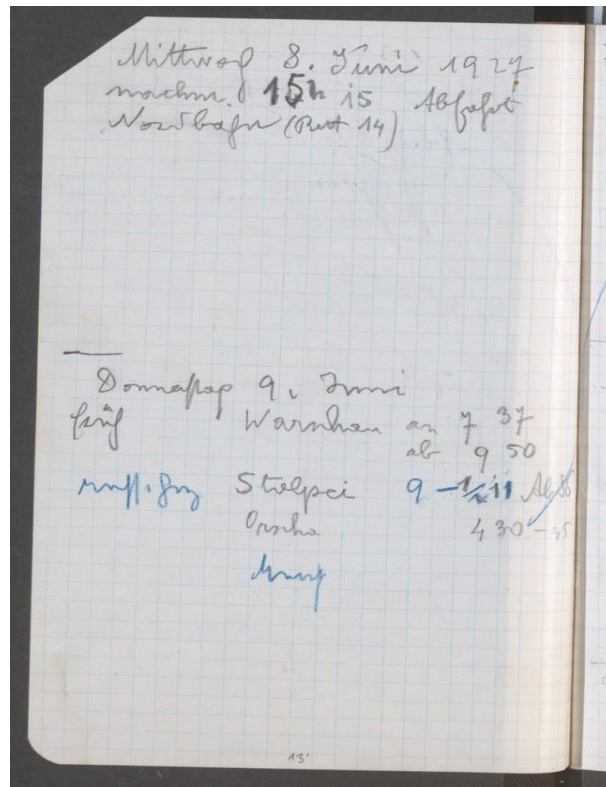 Mittwoch 8. Juni 1927
nachm. 15h 15 Abfahrt
Nordbahn (Bett 14)
Donnerstag 9. Juni
früh Warschau an 7 37
ab 9 50
russ. Stolpci 9 – 1/2 11
Orscha 4 30 – 
13